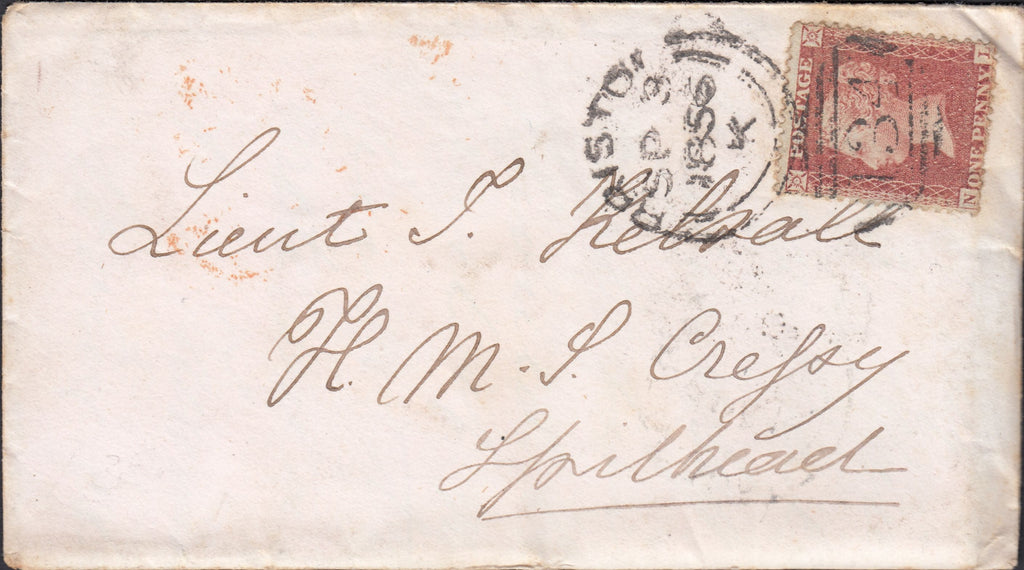 Lieut T. Kelsall
H. M. S. Cressy
Spithead
POSTAGE
ONE PENNY
N I
134
SP 3
1856
K